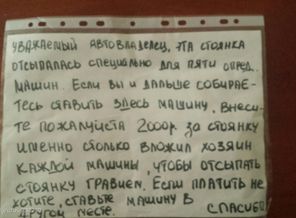 уважаемый автовладелец, эта стоянка
отсыпалась специально для пяти опред.
машин. Если вы и дальше собирае-
тесь ставить здесь машину, внеси-
те пожалуйста 2000р. за стоянку
именно столько вложил хозяин
каждой машины, чтобы отсыпать
стоянку гравием. Если платить не
хотите, ставьте машину в
другом месте. спасибо